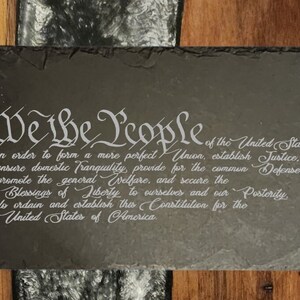 We the People of the United Sta
n order to form a more perfect Union, establish Justice,
ensure domestic Tranquility, provide for the common Defense
promote the general Welfare, and secure the
Blessings of Liberty to ourselves and our Posterity,
do ordain and establish this Constitution for the
United States of America.